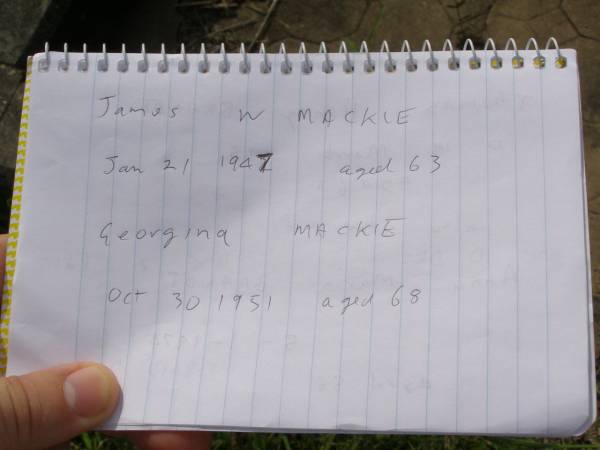 James W MACKIE
Jan 21 1947 aged 63
Georgina MACKIE
Oct 30 1951 aged 68